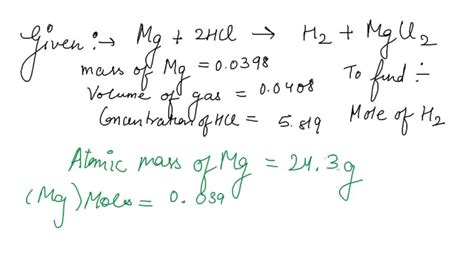 Given :→ Mg + 2HCl → H₂ + MgCl₂
mass of Mg = 0.0398 To find ÷
Volume of gas = 0.0408 Mole of H₂
Concentration of HCl = 5.819
Atomic mass of Mg = 24.3g
(Mg) Moles = 0.039